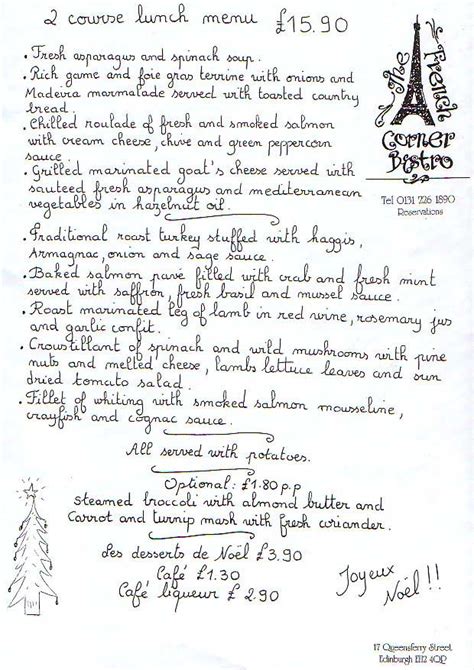 2 course lunch menu £15.90
. Fresh asparagus and spinach soup.
. Rich game and foie gras terrine with onions and
Madeira marmalade served with toasted country
bread.
. Chilled roulade of fresh and smoked salmon
with cream cheese, chive and green peppercorn
sauce.
. Grilled marinated goat's cheese served with
sauteed fresh asparagus and mediterranean
vegetables in hazelnut oil.
The French
Corner
Bistro
Tel 0131 226 1890
Reservations
. Traditional roast turkey stuffed with haggis,
Armagnac, onion and sage sauce.
. Baked salmon pavé filled with crab and fresh mint
served with saffron, fresh basil and mussel sauce.
. Roast marinated leg of lamb in red wine, rosemary jus
and garlic confit.
. Croustillant of spinach and wild mushrooms with pine
nuts and melted cheese, lambs lettuce leaves and sun
dried tomato salad.
. Fillet of whiting with smoked salmon mousseline,
crayfish and cognac sauce.
All served with potatoes.
Optional: £1.80 p.p
Steamed broccoli with almond butter and
Carrot and turnip mash with fresh coriander.
Les desserts de Noël £3.90
Café £1.30
Café liqueur £2.90
Joyeux
Noël!!
17 Queensferry Street
Edinburgh EH2 4QP